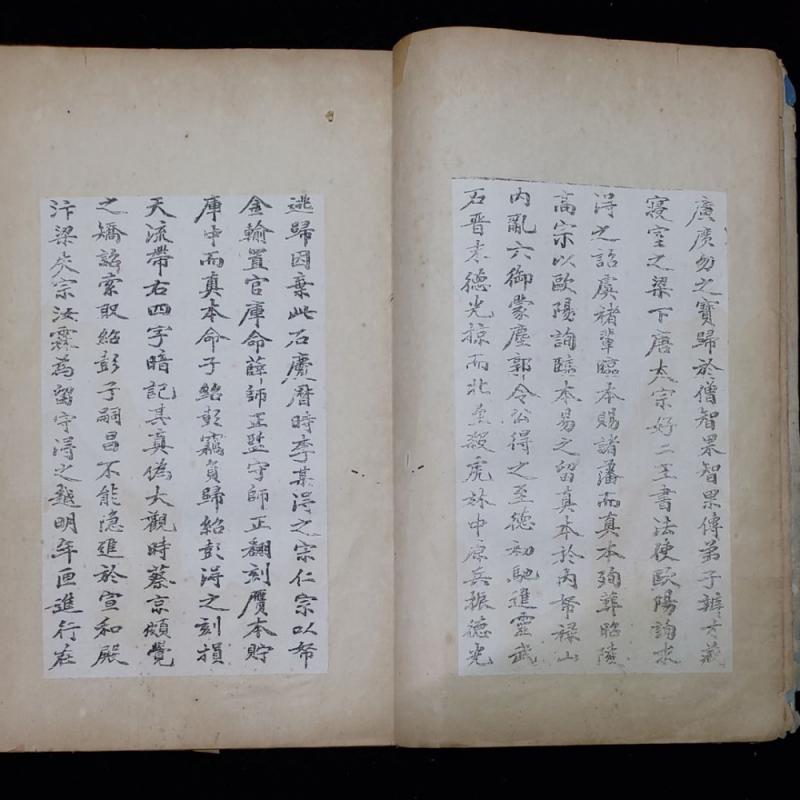 廣廣勿之寶歸於僧智果智果傳弟子辨才藏
寢室之梁下唐太宗好二王書法使歐陽詢求
得之詔虞褚輩臨本賜諸藩而真本殉葬昭陵
高宗以歐陽詢臨本易之留真本於內帑祿山
內亂六御蒙塵郭令公得之至德初馳進靈武
石晉末德光掠而北至殺虎林中原兵振德光
逃歸因棄此石慶曆時李某得之宗仁宗以帑
金輸置官庫命薛師正監守師正翻刻贗本貯
庫中而真本命子紹彭竊負歸紹彭得之刻損
天流帶右四字暗記其真偽大觀時蔡京頗覺
之矯詔索取紹彭子嗣昌不能隱進於宣和殿
汴梁失宗汝霖為留守得之越明年亟進行在